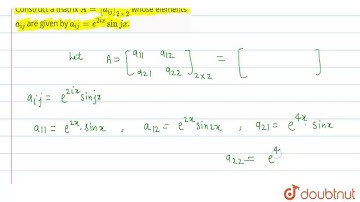 Construct a matrix A = [a_ij]_{2×2} whose elements
a_ij are given by a_ij = e^{2ix} sin jx.
Let A = [a11 a12
a21 a22]_{2×2} = [ ]
aij = e^{2ix} sinjx
a11 = e^{2x}.sinx , a12 = e^{2x} sin2x , a21 = e^{4x}. sinx
a22 = e^{4
doubtnut